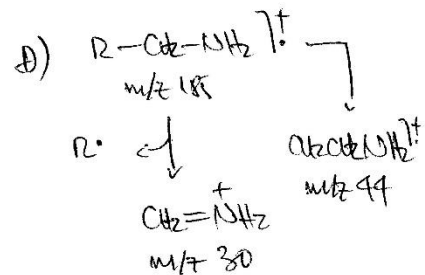 D) R-CH2-NH2 ]+•
m/z 185
R•
CH2CH2NH2]+•
m/z 44
+
CH2=NH2
m/z 30